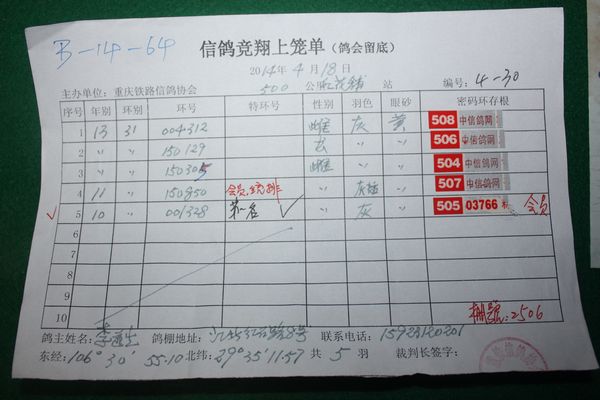 B-14-64
信鸽竞翔上笼单（鸽会留底）
2014年4月18日
主办单位：重庆铁路信鸽协会 500公里 站 编号：4-30
序号 年别 环别 环号 特环号 性别 羽色 眼砂 密码环存根
1 13 31 004312 雌 灰 黄 508 中信鸽网
2 〃 〃 150129 〃 〃 506 中信鸽网
3 〃 〃 150305 雌 〃 〃 504 中信鸽网
4 11 〃 150950 会员 灰 〃 507 中信鸽网
✓ 5 10 〃 001328 第一名 ✓ 〃 灰 〃 505 03766 会员
6
7
8
9
10 棚号:2506
鸽主姓名： 鸽棚地址： 8号 联系电话：
东经：106°30′55.10 北纬：29°35′11.57 共 5 羽 裁判长签字：